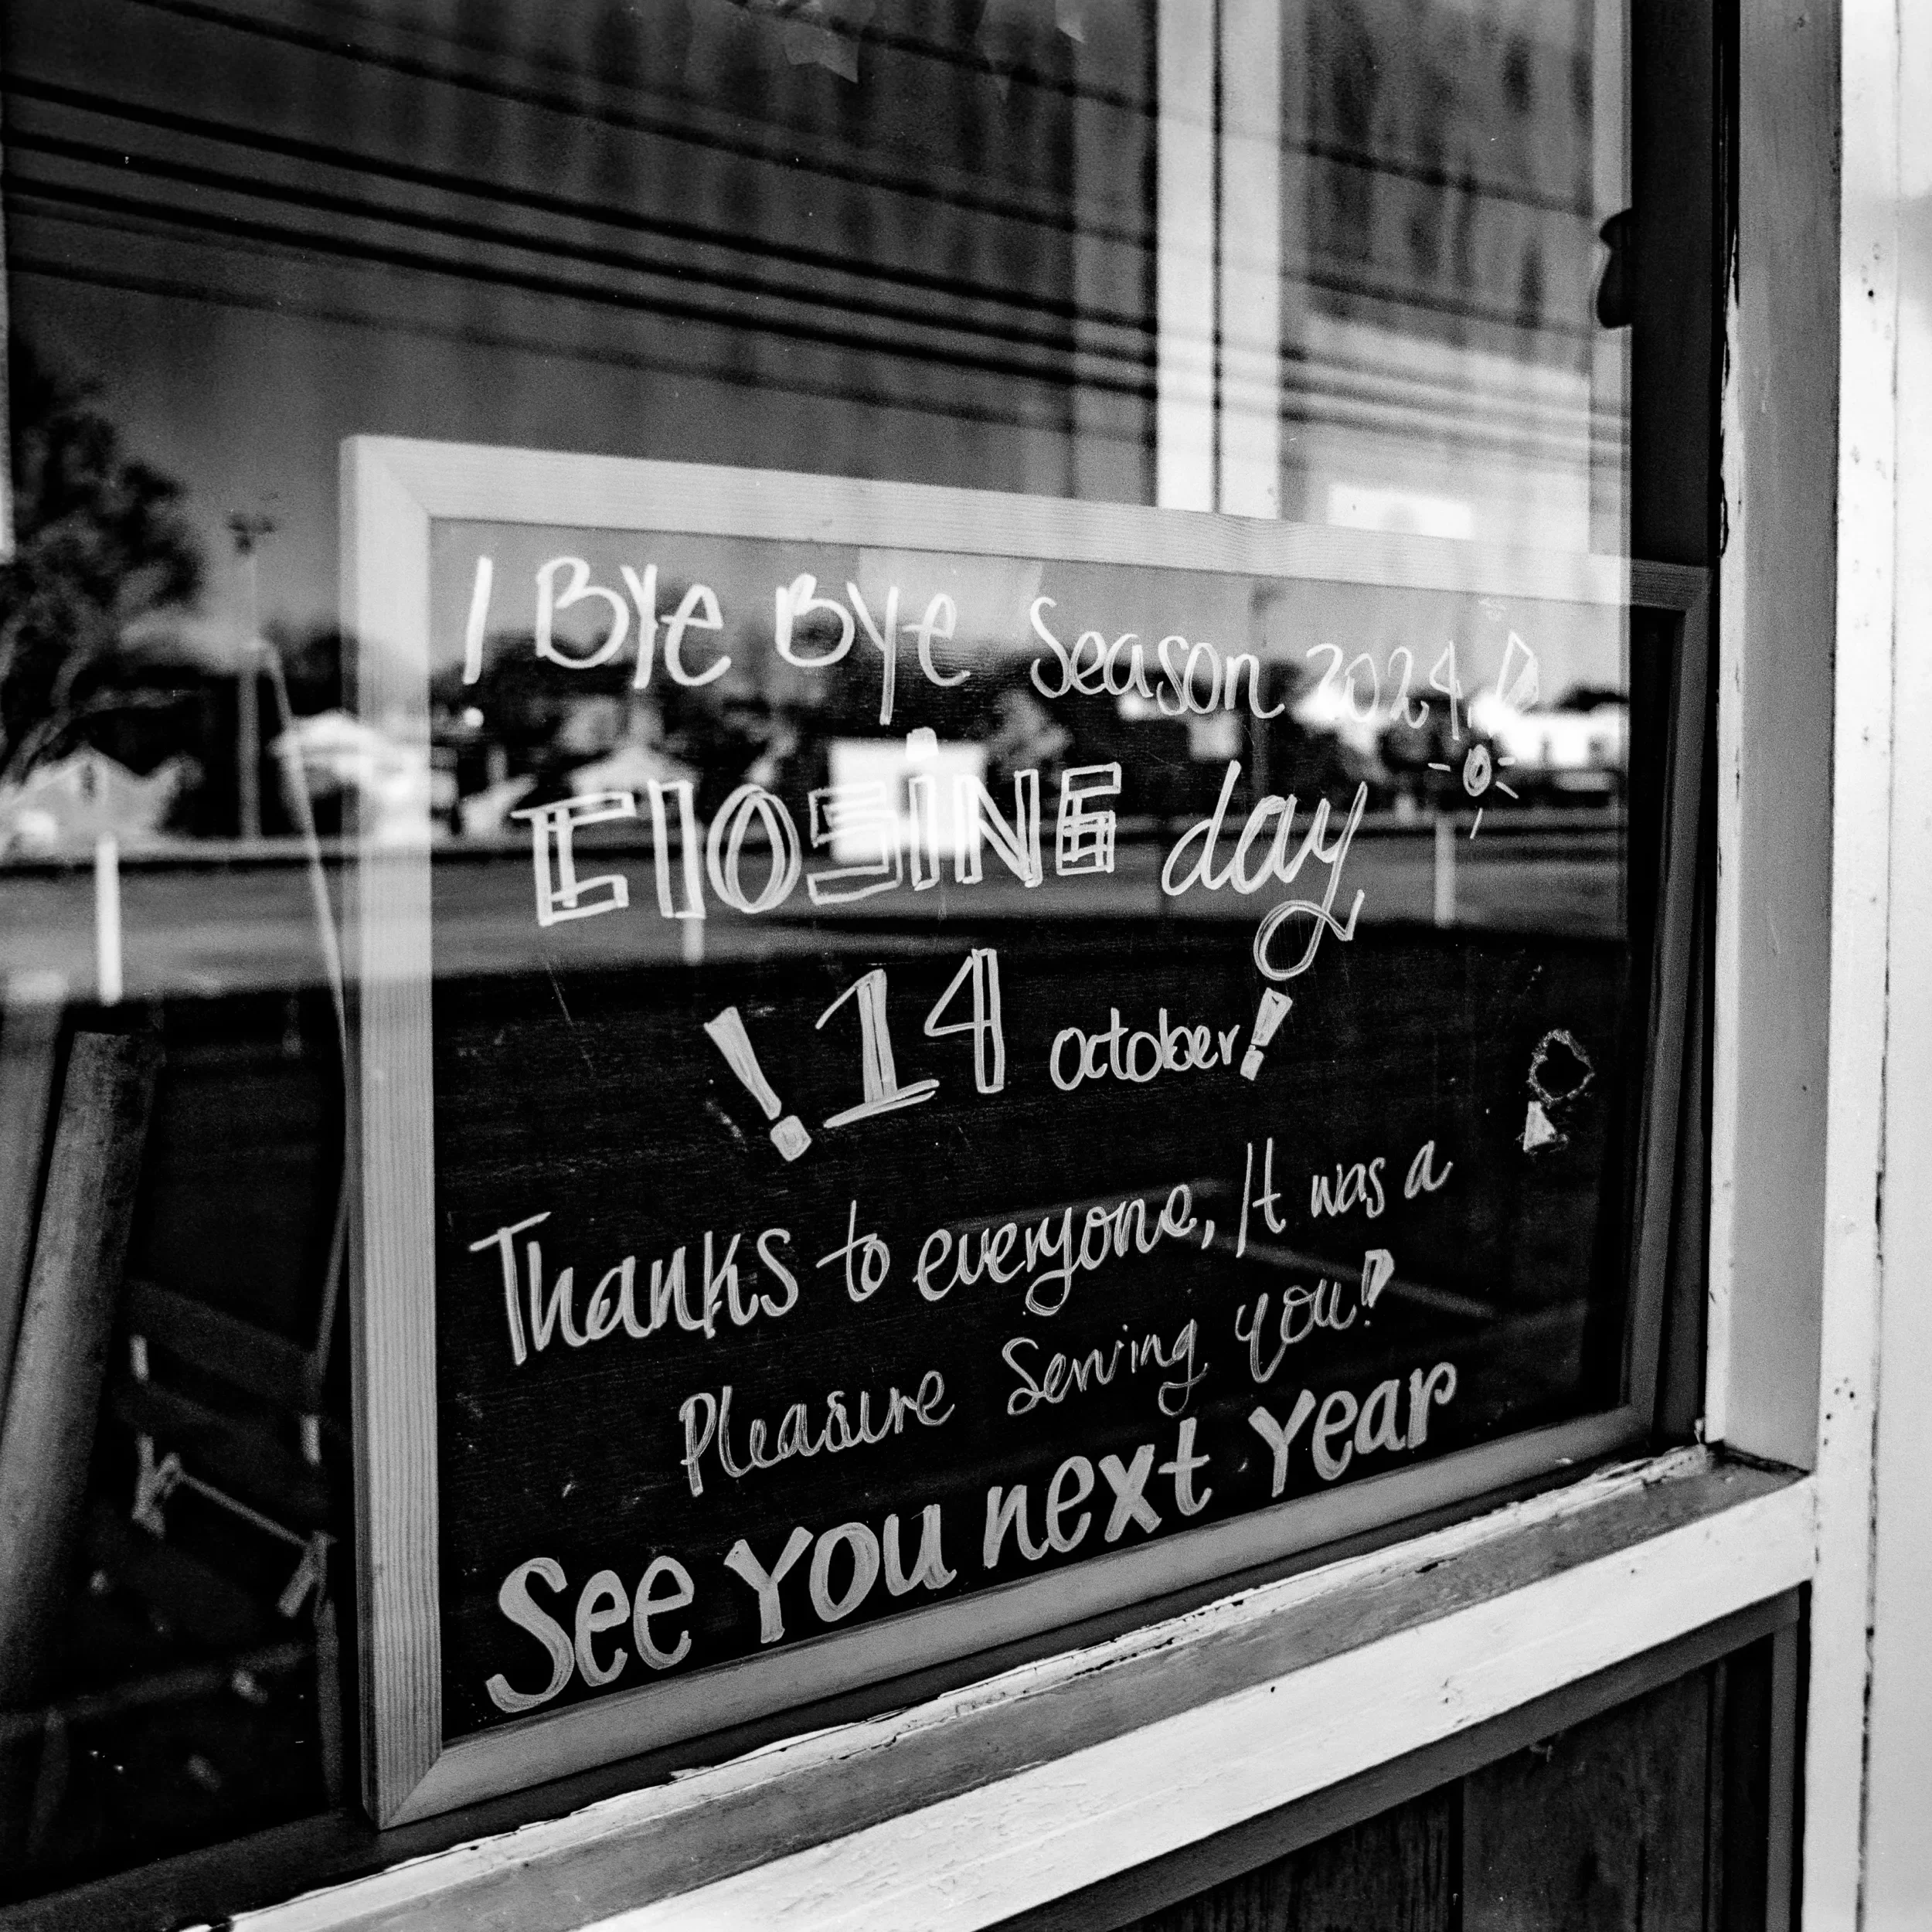 ! Bye Bye Season 2024!
ClOSiNG day
! 14 october!
Thanks to everyone, It was a
Pleasure Serving you!
See You next Year